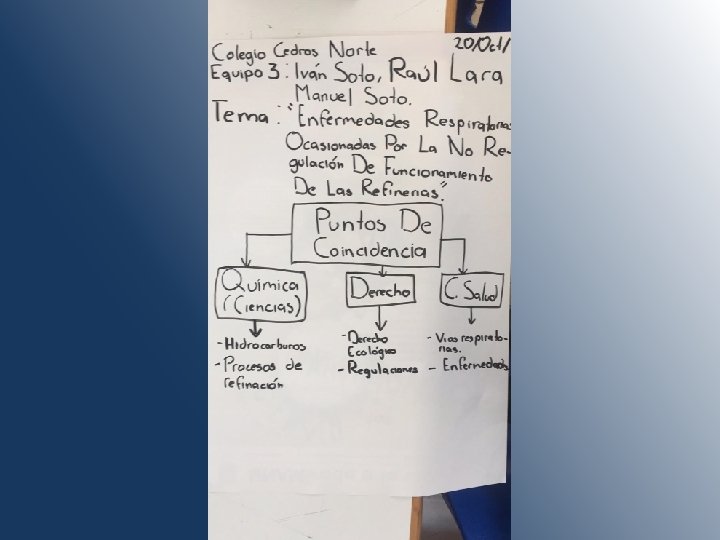 Colegio Cedros Norte
20/Oct/
Equipo 3: Iván Soto, Raúl Lara
Manuel Soto.
Tema: "Enfermedades Respiratorias
Ocasionadas Por La No Re-
gulación De Funcionamiento
De Las Refinerias."
Puntos De
Coincidencia
Química
(Ciencias)
Derecho
C. Salud
-Hidrocarburos
-Procesos de
refinación
-Derecho
Ecológico
-Regulaciones
-Vias respirato-
rias.
-Enfermedades